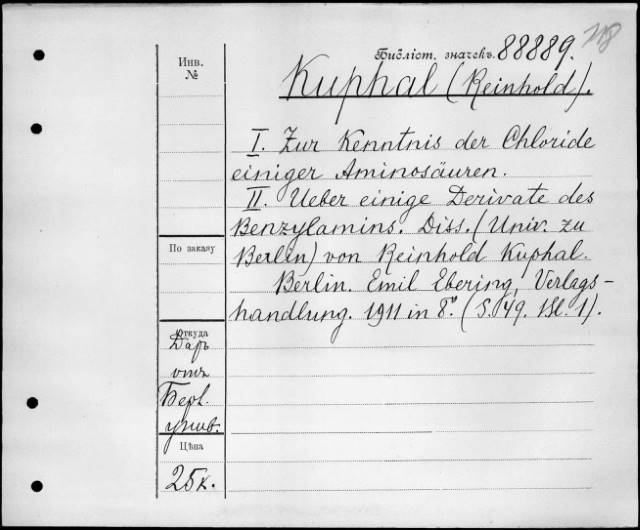 Библіот. значекъ. 88889.
Инв.
№
Kuphal (Reinhold).
I. Zur Kenntnis der Chloride
einiger Aminosäuren.
II. Ueber einige Derivate des
Benzylamins. Diss. (Univ. zu
Berlin) von Reinhold Kuphal.
Berlin. Emil Ebering, Verlags-
handlung. 1911 in 8°. (S. 49. Bl. 1).
По заказу
Откуда
Даръ
отъ
Берл.
унив.
Цѣна
25 к.